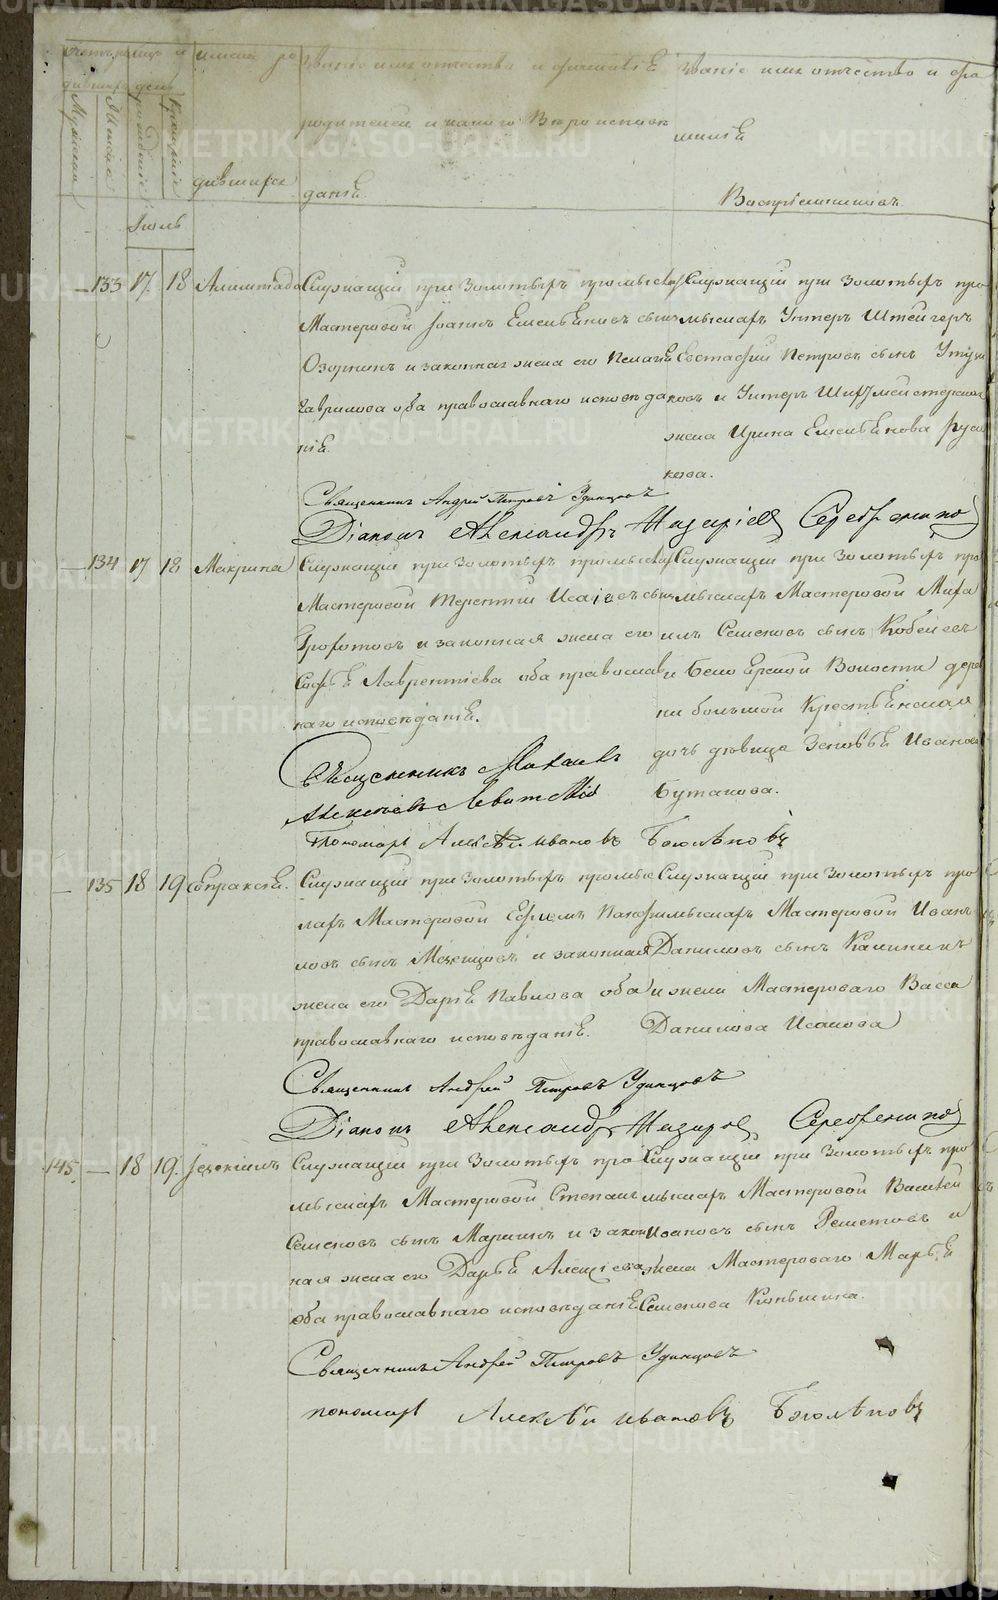 Счетъ родив
шихся
имена ро
Званіе имя отчество и фамиліѣ
Званіе имя отчество и фа
месяцъ и
день
Мужеска
Женска
рожденіе
крещеніе
дившихся
родителей и какого Вѣроисповѣ
даніѣ.
миліѣ
Воспріемниковъ.
Іюль
— 133 17. 18 Служащій при Золотыхъ промыслахъ
Мастеровой Іоаннъ Емельяновъ сынъ
и законная жена его Пелагиѣ
Гаврилова оба православнаго исповѣда
ніѣ.
Служащій при Золотыхъ про
мыслахъ Унтеръ Штейгеръ
Евстафій Петровъ сынъ
и Унтеръ
жена Ирина Емельянова Руса
кова.
Священникъ Андрей Петровъ Удинцовъ
Діаконъ Александръ Назаріевъ Серебренико
— 134 17 18 Макрина Служащій при Золотыхъ промыслахъ
Мастеровой Терентій Исаіевъ сынъ
и законная жена его
Софьѣ Лаврентіева оба православ
наго исповѣданіѣ.
Служащій при Золотыхъ про
мыслахъ Мастеровой Миха
илъ Семеновъ сынъ
и Волости дерев
ни большой Крестьѣнская
дочь дѣвица Зеновьѣ Иванова
Бутакова.
Священникъ Михаилъ
Алексіевъ Левитскій
Пономарь Алексѣй Ивановъ Боголѣповъ
— 135 18 19 Евпраксіѣ. Служащій при Золотыхъ промыс
лахъ Мастеровой Ефремъ Панфи
ловъ сынъ и законная
жена его Дарьѣ Павлова оба
православнаго исповѣданіѣ.
Служащій при Золотыхъ про
мыслахъ Мастеровой Иванъ
Даниловъ сынъ Калининъ
и жена Мастероваго Васса
Данилова Исакова
Священникъ Андрей Петровъ Удинцовъ
Діаконъ Александръ Назаровъ Серебренико
145. — 18 19. Іезекіилъ Служащій при Золотыхъ про
мыслахъ Мастеровой Степанъ
Семеновъ сынъ и закон
ная жена его Дарьѣ Алексіева
оба православнаго исповѣданіѣ
Служащій при Золотыхъ про
мыслахъ Мастеровой Василей
Ивановъ сынъ Решетовъ и
жена Мастероваго Марьѣ
Семенова Коньшина.
Священникъ Андрей Петровъ Удинцовъ
пономарь Алексѣй Ивановъ Боголѣповъ
METRIKI.GASO-URAL.RU